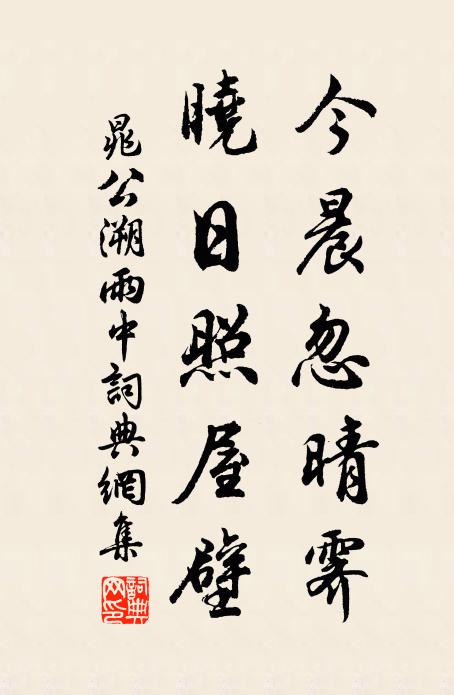 今晨忽晴霁
曉日照屋壁
晁公溯雨中詞典網集
詞典網印